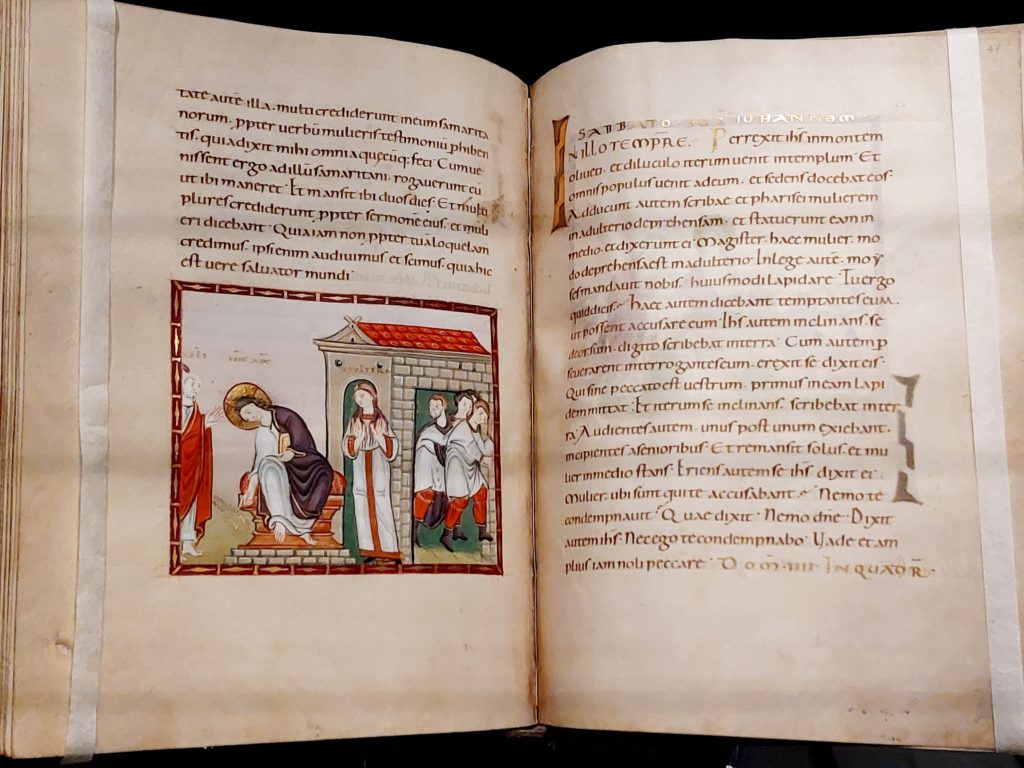 tate autē illa. multi crediderunt in eum samarita
norum. ꝓpter verbū mulieris testimoniū phiben
tis. quia dixit mihi omnia quęcūq; feci. Cum ve
nissent ergo ad illū samaritani. rogaverunt eū
ut ibi maneret. Et mansit ibi duos dies. Et multi
plures crediderunt ꝓpter sermonē eius. et muli
eri dicebant. Quia iam non ꝓpter tuā loquelam
credimus. ipsi enim audivimus et scimus. quia hic
est vere salvator mundi.
SABBATO SCD IOHANNEM.
IN ILLO TEMPRE. Perrexit ihs in montem
oliveti. et diluculo iterum venit in templum. Et
omnis populus venit ad eum. et sedens docebat eos.
Adducunt autem scribae et pharisei mulierem
in adulterio deprehensam. et statuerunt eam in
medio. et dixerunt ei. Magister. haec mulier. mo
do deprehensa est in adulterio. In lege autē. moy
ses mandavit nobis. huiusmodi lapidare. Tu ergo
quid dicis. haec autem dicebant temptantes eum.
ut possent accusare eum. Ihs autem inclinans. se
deorsum. digito scribebat in terra. Cum autem p
severarent interrogantes eum. erexit se. dixit eis.
Qui sine peccato est vestrum. primus in eam lapi
dem mittat. Et iterum se inclinans. scribebat in ter
ra. Audientes autem. unus post unum exiebant.
incipientes a senioribus. Et remansit solus. et mu
lier in medio stans. Eriens autem se ihs dixit ei.
Mulier. ubi sunt qui te accusābant. Nemo te
condempnavit. Quae dixit. Nemo dn̄e. Dixit
autem ihs. Nec ego te condempnabo. Vade et am
plius iam noli peccare. DOM IIII IN QUADR.